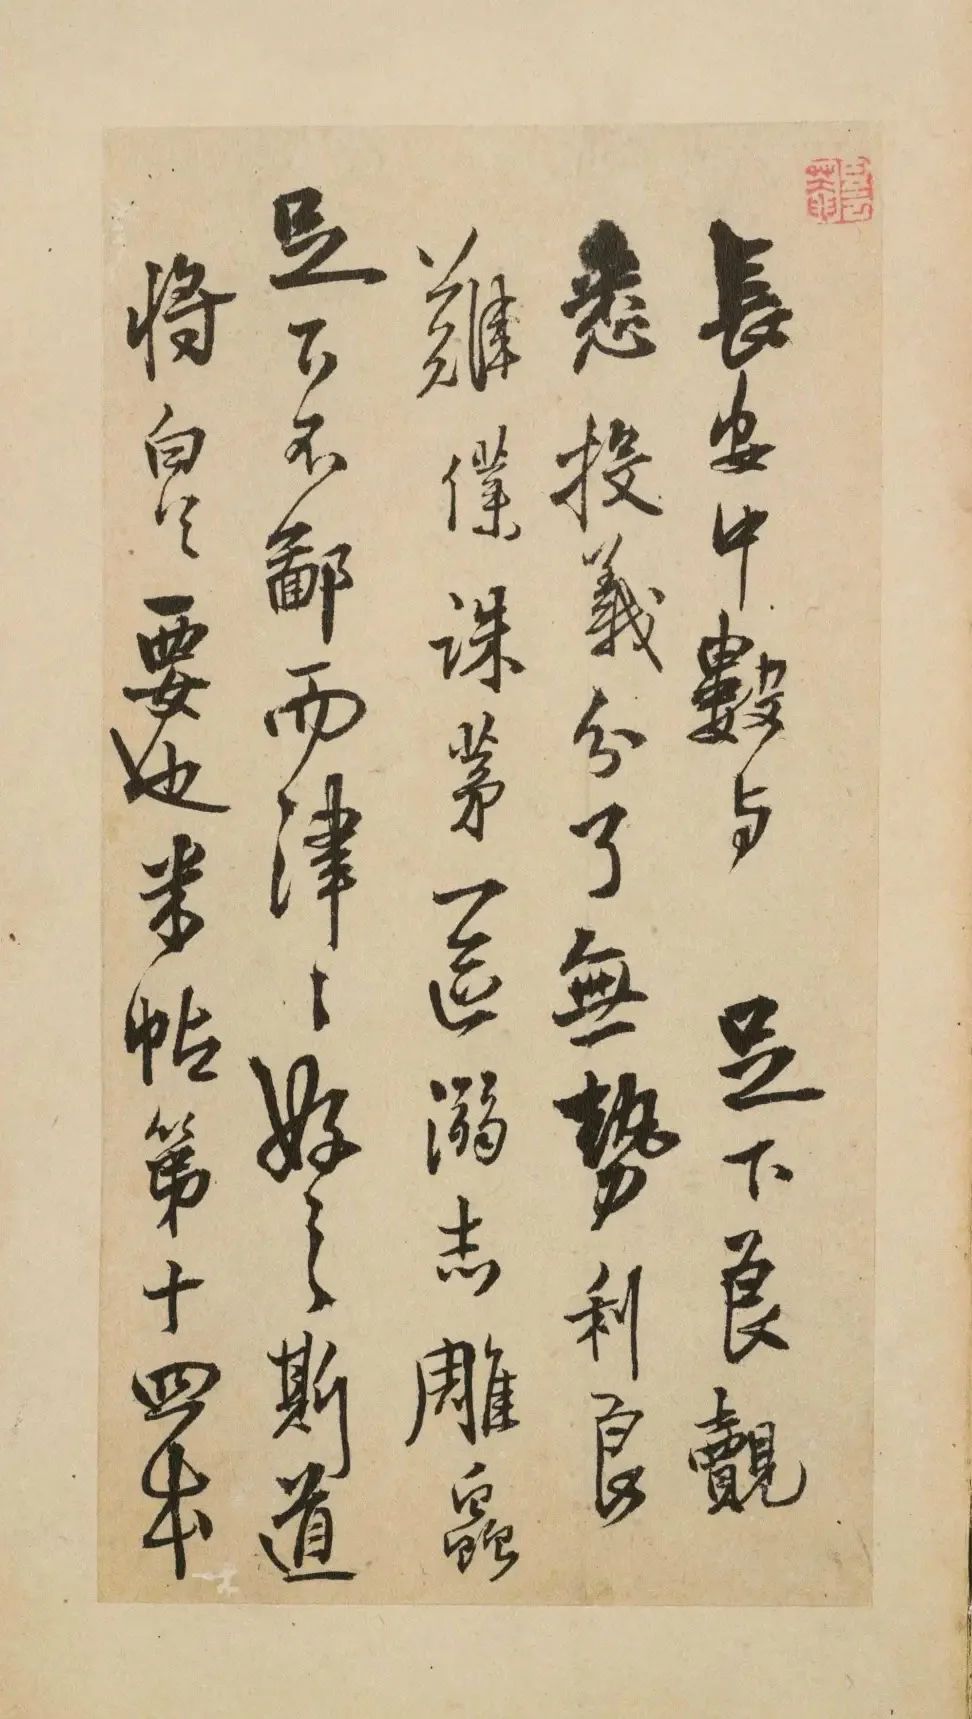 長安中數与 足下良覿
悉投義分了無勢利良
難僕誅茅一區溺志雕蟲
足下不鄙而津〻好之斯道
將自是要也米帖第十四本